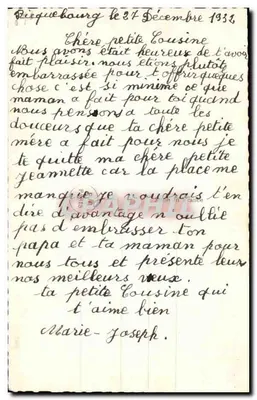 Ricquebourg le 27 Décembre 1932
Chère petite Cousine
Nous avons était heureux de t'avoir
fait plaisir. nous etions plutôt
embarrassée pour t'offrir quelques
chose c'est si minime ce que
maman a fait pour toi quand
nous pensons a toute les
douceurs que ta chère petite
mère a fait pour nous je
te quitte ma chère petite
jeannette car la place me
manque je voudrais t'en
dire d'avantage n'oublie
pas d'embrasser ton
papa et ta maman pour
nous tous et présente leur
nos meilleurs vœux.
ta petite Cousine qui
t'aime bien
Marie-Joseph.